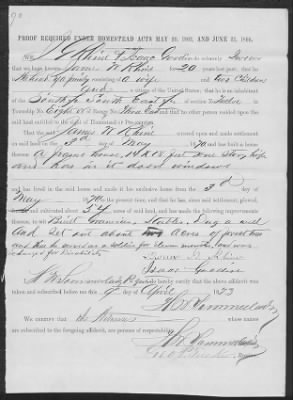 PROOF REQUIRED UNDER HOMESTEAD ACTS MAY 20, 1862, AND JUNE 21, 1866.
We, J. G. Rhine & Isaac Goodin do solemnly swear
that we have known James W. Rhine for 20 years last past; that he
is head of a family consisting of a wife and two Children
and a citizen of the United States; that he is an inhabitant of the
South ½ South East ¼ of section No. Twelve in
Township No. Eight of Range No. Three East and that no other person resided upon the
said land entitled to the right of Homestead or Pre-emption.
That the said James W. Rhine entered upon and made settlement
on said land on the 3rd day of May, 1870 and has built a house thereon
A frame house, 14 x 18 feet one Story high
and has in it doors windows
and has lived in the said house and made it his exclusive home from the 3rd day of
May 1870 to the present time, and that he has, since said settlement, plowed,
and cultivated about 54 acres of said land, and has made the following improvements
thereon, to wit: Built Stables, Dug a well
And Set out about two Acres of forest trees
and that he served as a soldier for eleven months and was
discharged for Disability
Isaac Goodin
hereby certify that the above affidavit
was taken and subscribed before me this 9 day of April 1873
WE CERTIFY that the Witnesses whose names
are subscribed to the foregoing affidavit, are persons of respectability.